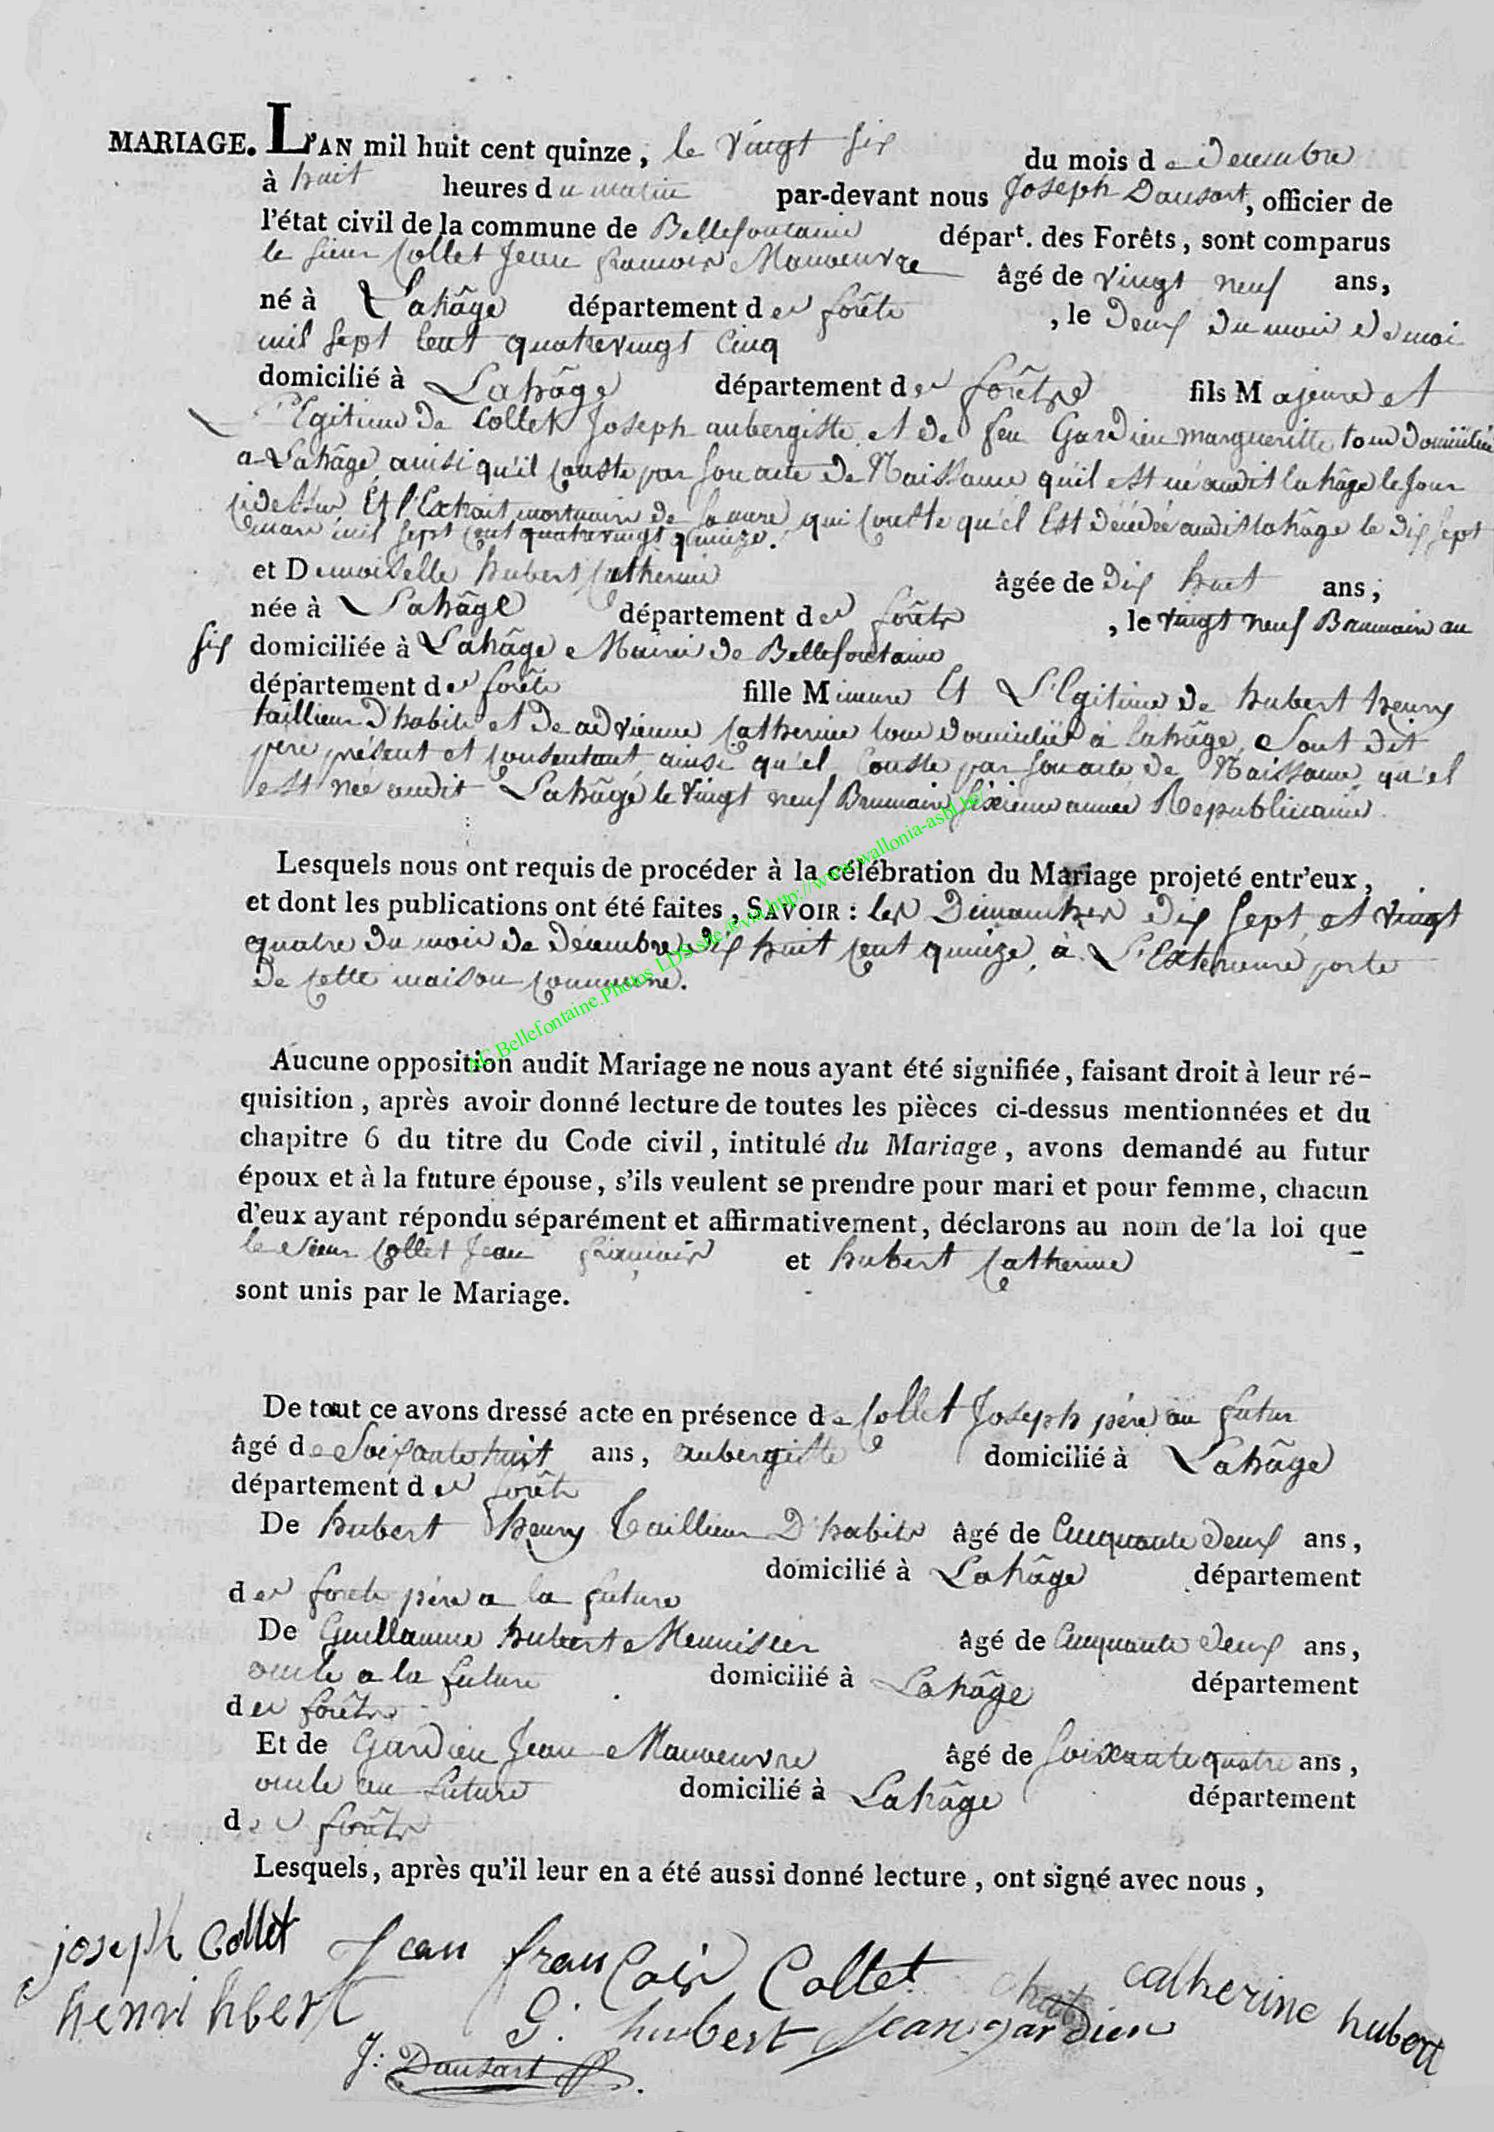 MARIAGE. L'AN mil huit cent quinze, le vingt six du mois de Decembre
à huit heures du matin par-devant nous Joseph Dausart, officier de
l'état civil de la commune de Bellefontaine départ. des Forêts, sont comparus
le sieur Collet Jean francois Manoeuvre âgé de vingt neuf ans,
né à Lahâge département des forêts, le Deux du mois de mai
mil sept cent quatrevingt cinq
domicilié à Lahâge département des forêts fils Majeure et
L'Egitime de Collet Joseph aubergiste et de feu Gardien margueritte tous domicilié
a Lahâge ainsi qu'il conste par son acte de Naissance qu'il est né audit lahâge le Jour
cidessus Et l'Extrait mortuaire de sa mere qui conste qu'el Est décédée audit lahâge le dix sept
mars mil sept cent quatrevingt quinze.
et Demoiselle hubert Catherine âgée de dix huit ans;
née à Lahâge département des forêts, le vingt neuf Brumaire an
six domiciliée à Lahâge Mairie de Bellefontaine
département des forêts fille Mineure Et L'Egitime de hubert henry
taillieur d'habits et de advienne Catherine tous domicilié à lahâge, Sont dit
pere présent et consentant ainsi qu'el conste par son acte de Naissance qu'el
est née audit Lahâge le vingt neuf Brumaire sixieme année Republicaine.
Lesquels nous ont requis de procéder à la célébration du Mariage projeté entr'eux,
et dont les publications ont été faites, SAVOIR: les Dimanches dix sept et vingt
quatre du mois de décembre dix huit cent quinze, à L'Exterieure porte
De cette maison commune.
AC Bellefontaine.Photos LDS site Kvin http://www.wallonia-asbl.be/
Aucune opposition audit Mariage ne nous ayant été signifiée, faisant droit à leur ré-
quisition, après avoir donné lecture de toutes les pièces ci-dessus mentionnées et du
chapitre 6 du titre du Code civil, intitulé du Mariage, avons demandé au futur
époux et à la future épouse, s'ils veulent se prendre pour mari et pour femme, chacun
d'eux ayant répondu séparément et affirmativement, déclarons au nom de la loi que
le sieur Collet Jean francois et hubert Catherine
sont unis par le Mariage.
De tout ce avons dressé acte en présence de Collet Joseph père au futur
âgé de Soixante huit ans, aubergiste domicilié à Lahâge
département des forêts
De hubert henry Taillieur D'habits âgé de Cinquante deux ans,
domicilié à Lahâge département
des forêts père a la future
De Guillaume hubert Menuisier âgé de Cinquante deux ans,
oncle a la future domicilié à Lahâge département
des forêts
Et de Gardien Jean Manoeuvre âgé de soixante quatre ans,
oncle au future domicilié à Lahâge département
des forêts
Lesquels, après qu'il leur en a été aussi donné lecture, ont signé avec nous,
joseph Collet Jean francois Collet catherine hubert
henri hbert G. hubert Jean gardien
J: Dausart